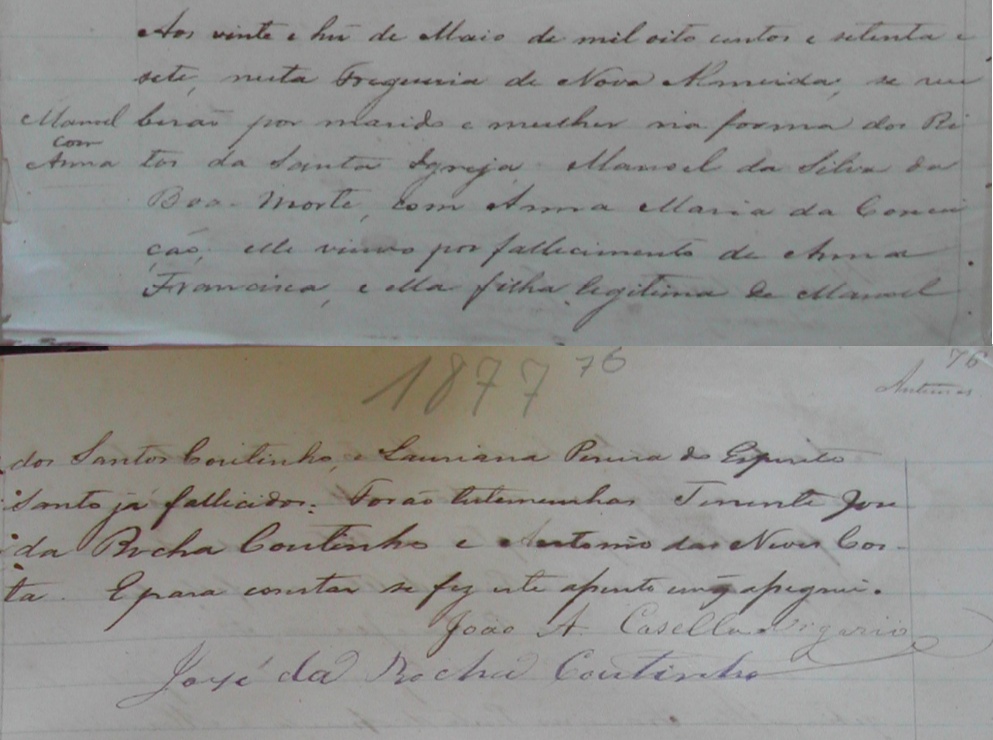 Aos vinte e hũ de Maio de mil oito centos e setenta e
sete, nesta Freguesia de Nova Almeida, se rece
Manoel berão por marido e mulher na forma dos Ri
com
Anna tos da Santa Igreja Manoel da Silva da
Boa-Morte, com Anna Maria da Concei
ção, elle viuvo por fallecimento de Anna
Francisca, e ella filha legitima de Manoel
1877 76 76
dos Santos Coutinho, e Lauriana Pereira do Espirito
Santo já fallicidos: Forão testemunhas Tenente Jose
da Rocha Coutinho e Antonio das Neves Cos-
ta. E para constar se fez este assento
João A. Casella Vigario
José da Rocha Coutinho